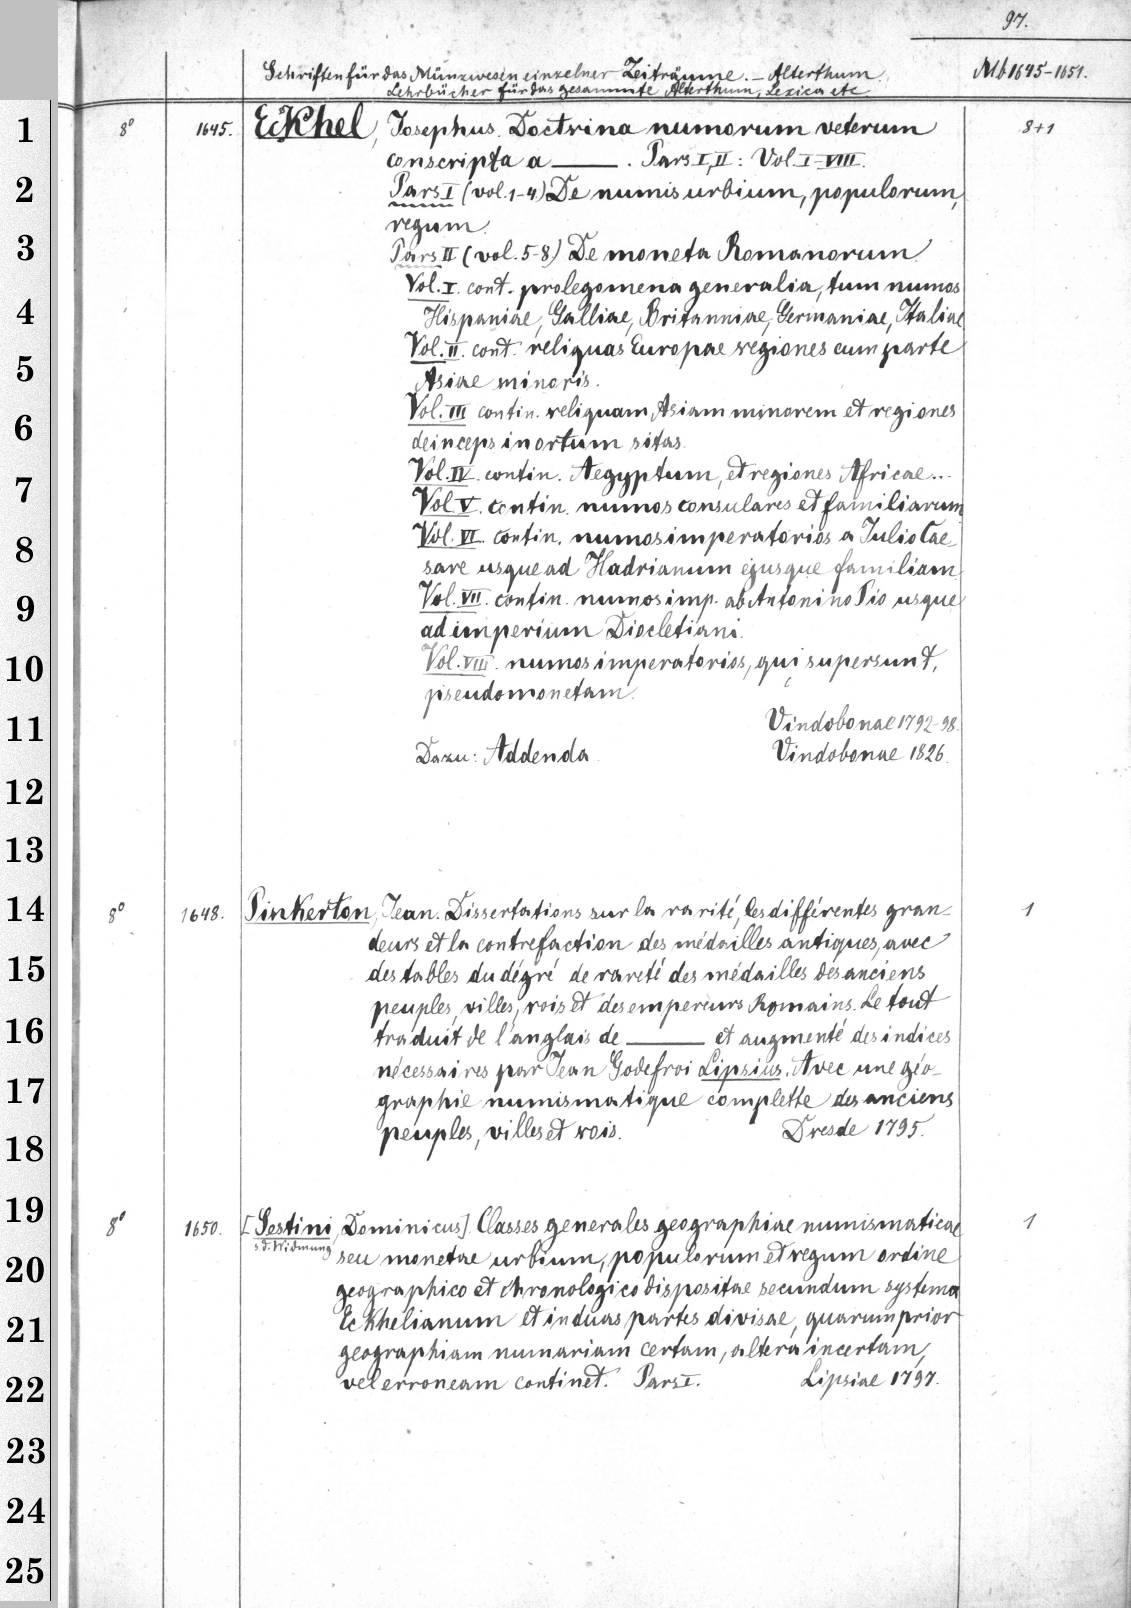 97.
Schriften für das Münzwesen einzelner Zeiträume. – Alterthum. Mb 1645–1651.
Lehrbücher für das gesammte Alterthum, Lexica etc
1 8° 1645. Eckhel, Iosephus. Doctrina numorum veterum 8+1
conscripta a ——. Pars I, II: Vol. I–VIII.
2 Pars I (vol. 1–4) De numis urbium, populorum,
regum.
3 Pars II (vol. 5–8) De moneta Romanorum.
Vol. I. cont. prolegomena generalia, tum numos
4 Hispaniae, Galliae, Britanniae, Germaniae, Italiae
Vol. II. cont. reliquas Europae regiones cum parte
5 Asiae minoris.
Vol. III contin. reliquam Asiam minorem et regiones
6 deinceps in ortum sitas.
Vol. IV. contin. Aegyptum, et regiones Africae...
7 Vol V. contin. numos consulares et familiarum
8 Vol. VI. contin. numos imperatorios a Iulio Cae-
sare usque ad Hadrianum ejusque familiam
9 Vol. VII. contin. numos imp. ab Antonino Pio usque
ad imperium Diocletiani.
10 Vol. VIII. numos imperatorios, qui supersunt,
pseudomonetam.
11 Vindobonae 1792–98.
Dazu: Addenda Vindobonae 1826.
12
13
14 8° 1648. Pinkerton, Jean. Dissertations sur la rarité, les différentes gran- 1
deurs et la contrefaction des médailles antiques, avec
15 des tables du dégré de rareté des médailles des anciens
peuples, villes, rois et des empereurs Romains. Le tout
16 traduit de l'anglais de —— et augmenté des indices
nécessaires par Jean Godefroi Lipsius. Avec une géo-
17 graphie numismatique complette des anciens
18 peuples, villes et rois. Dresde 1795.
19 8° 1650. [Sestini, Dominicus]. Classes generales geographiae numismaticae 1
s. d. Widmung
20 seu monetae urbium, populorum et regum ordine
geographico et chronologico dispositae secundum systema
21 Eckhelianum et in duas partes divisae, quarum prior
geographiam numariam certam, altera incertam,
22 vel erroneam continet. Pars I. Lipsiae 1797.
23
24
25